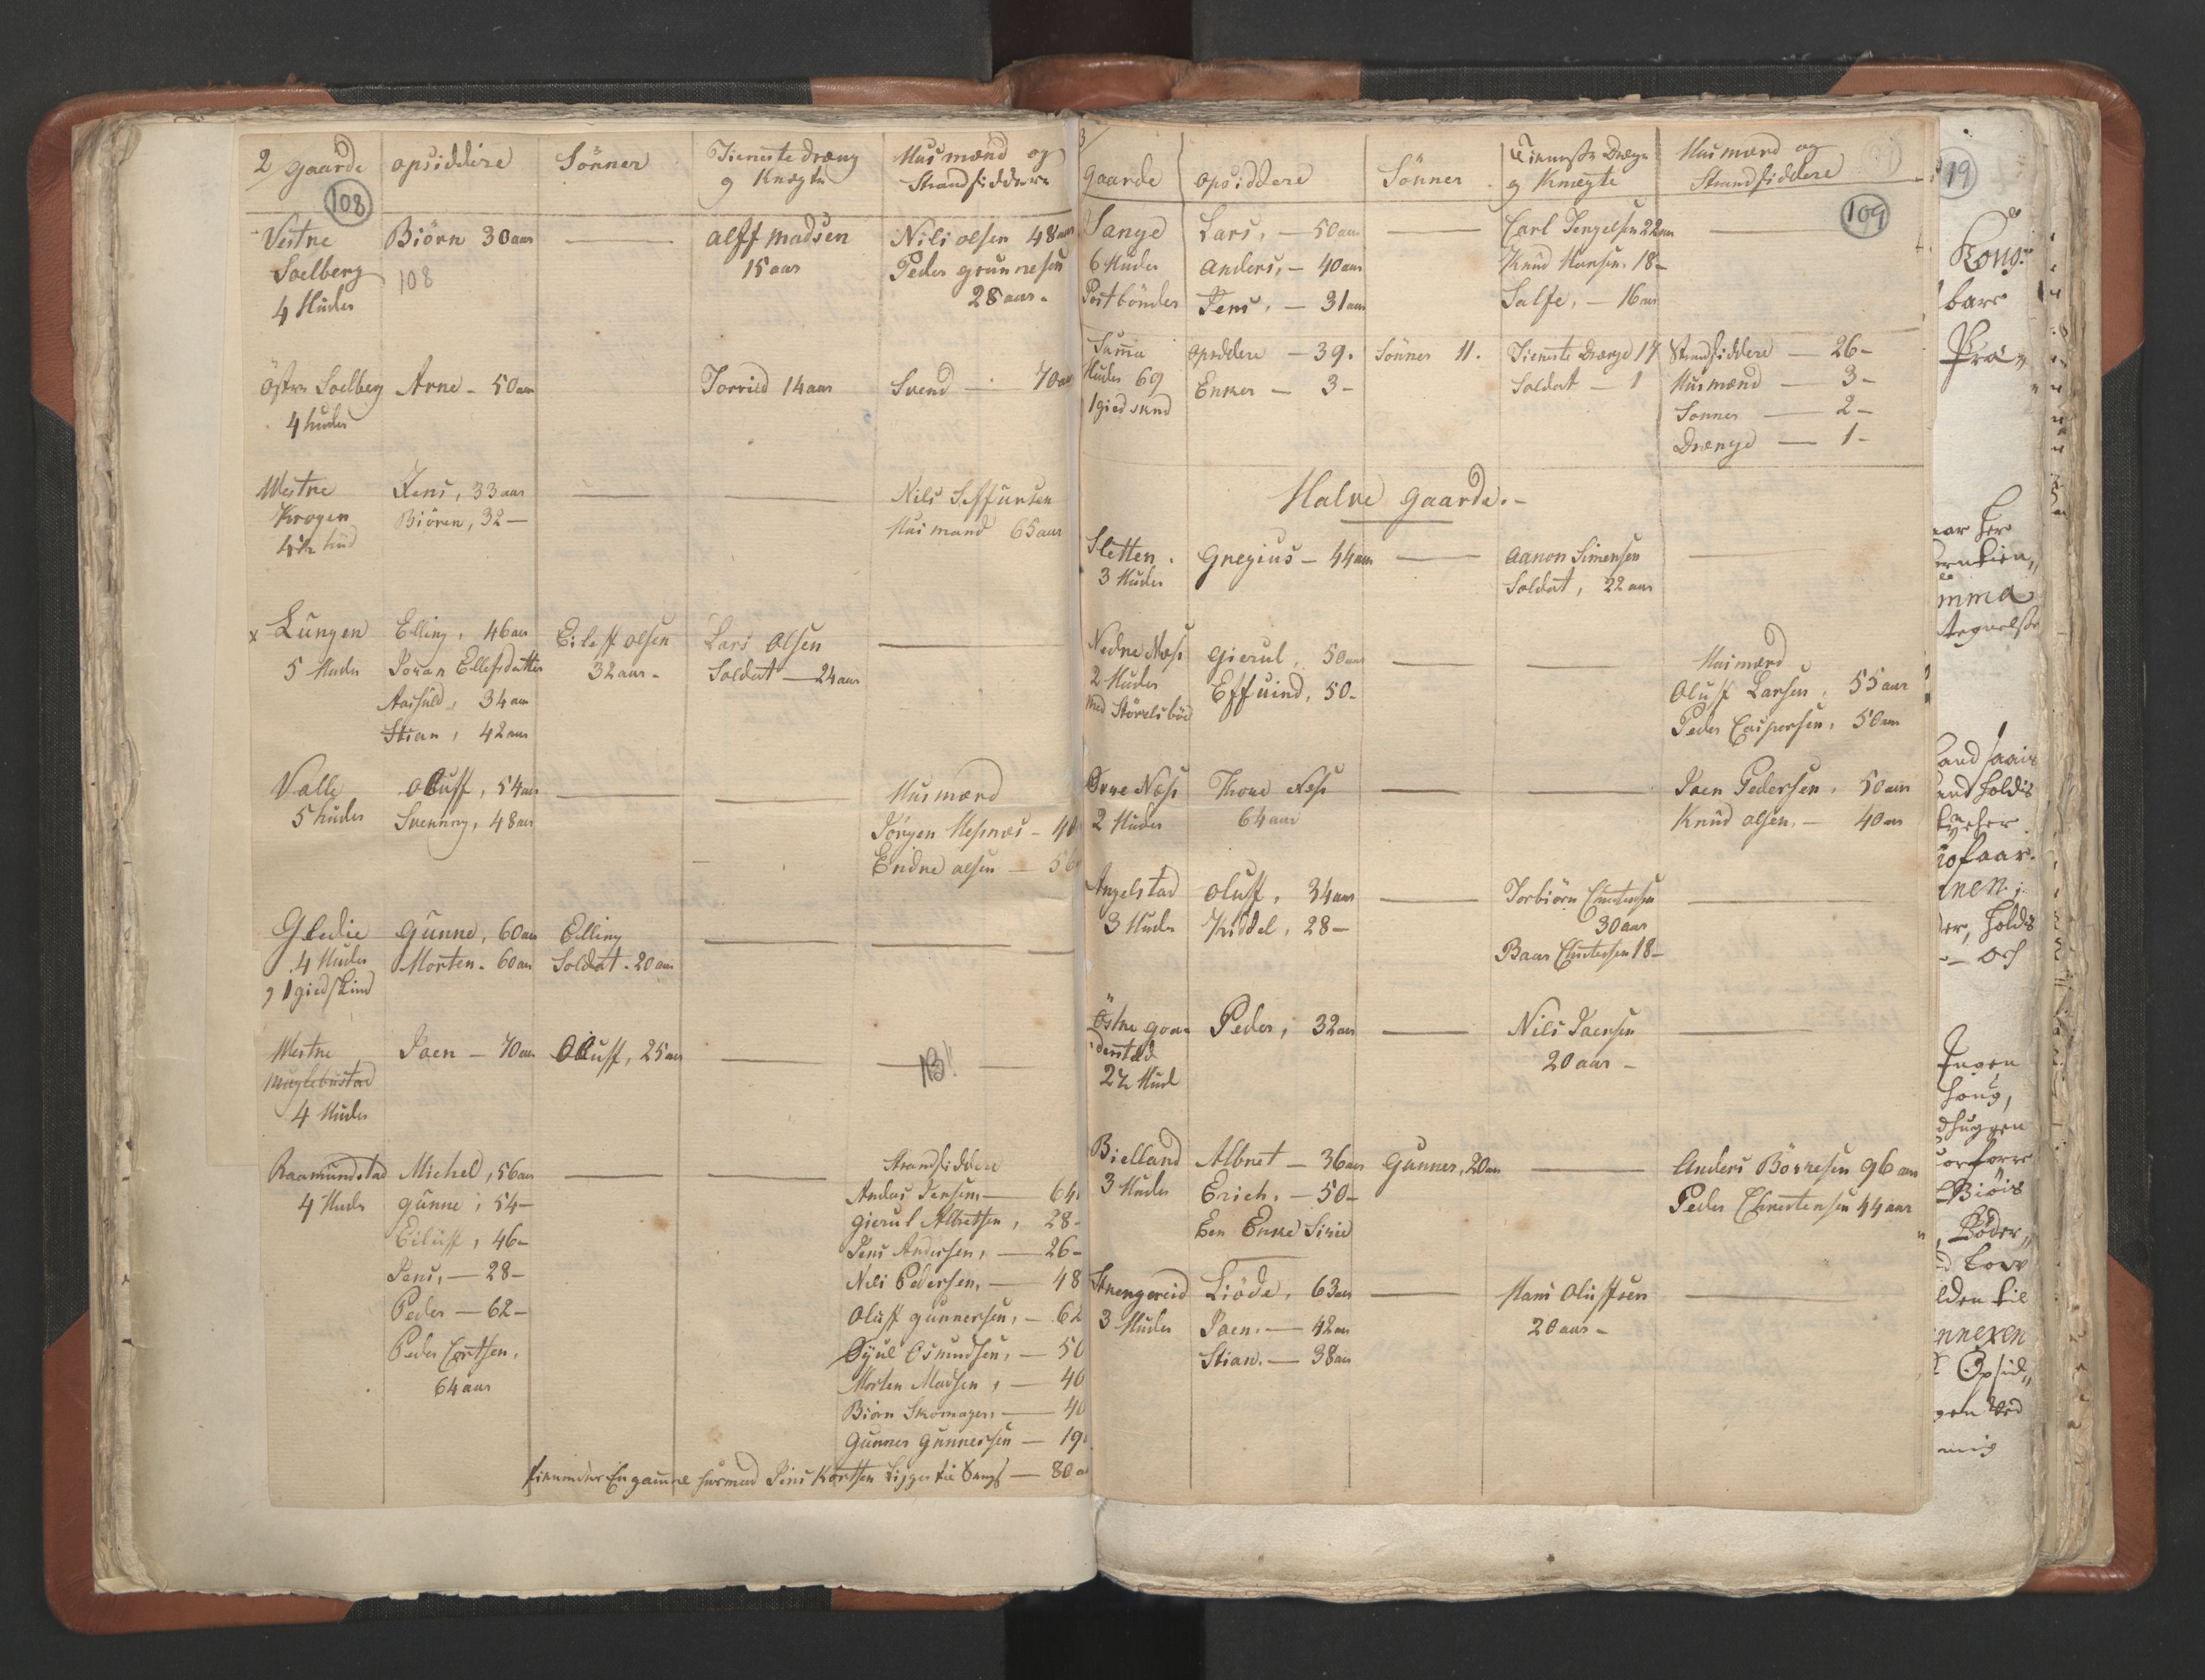 2 gaarde opsiddere Sönner Tieneste dreng Husmænd og
og Knegte Strandsiddere
108
Vestne Biörn 30 aar — alff Madsen Nils olsen 48 aar
Soelberg 108 15 aar Peder gunnesen
4 Huder 28 aar
östre Soelberg Arne - 50 aar Torrild 14 aar Svend — 70 aar
4 huder
Westne Jens, 33 aar — — Nils
Krogen Biören, 32 — Husmand 65 aar
4½ hud
x Lungen Elling, 46 aar Eileff olsen Lars Olsen —
5 Huder Joran Ellefsdatter 32 aar - Soldat — 24 aar
Aasuld, 34 aar
Stian, 42 aar
Valle Oluff, 54 aar — — Husmænd
5 huder Svenning, 48 aar Jörgen Hesnæs - 40
Endre olsen — 56
Gledie Gunne, 60 aar Elling — —
4 Huder Morten - 60 aar Soldat - 20 aar
og 1 giedskind
Westne Joen — 70 aar Oluff, 25 aar — NB!!
Muglebustad
4 Huder
Raamundstad Michel, 56 aar — — Strandsiddere
4 Huder gunne, 54 — Anders Jensen — 64
Eiluff, 46 — gierul Albretsen, 28 -
Jens, — 28 — Jens Andersen, — 26 -
Peder — 62 — Nils Pedersen, — 48
Peder Cortsen, Oluff gunnersen, — 62
64 aar Osmundsen, — 50
Morten Madsen, — 40
Biörn Skomager, — 40
Gunner Gunnersen — 19
En gammel husmand Jens Kortsen ligger til Sengs — 80 a
3/
gaarde opsiddere Sönner Tieneste Drenge Husmænd og
og Knegte Strandsiddere
109
Sange Lars, — 50 aar — Carl Tengelsen 22 aar —
6 Huder Anders, — 40 aar Knud Hansen 18 —
Postbönder Jens, — 31 aar Salfe, — 16 aar
Summa opsiddere — 39. Sönner 11. Tieneste Drenge 17 Strandsiddere — 26 —
Huder 69 Enker — 3 — Soldat — 1 Husmænd — 3 —
1 gied sknd Sönner — 2 —
Drenge — 1 —
Halve gaarde. —
Sletten. Gregius — 44 aar — Aanon Simensen —
3 Huder Soldat, 22 aar
Nedne Næss gierul, 50 aar — — Husmænd
2 Huder Effuind, 50 — Oluff Larsen, 55 aar
Med Störrelsböe Peder Caspersen, 50 aar
Övre Næss Thore Næss — — Joen Pedersen, 50 aar
2 Huder 64 aar Knud olsen, — 40 aar
Angelstad oluff, 34 aar — Torbiörn Christensen —
3 Huder Kiddel, 28 — 30 aar
Baar Christensen 18 —
Östne goar Peder, 32 aar — Nils Joensen —
denstad 20 aar —
2½ Hud
Bielland Albret — 36 aar Gunner, 20 aar — Anders Börresen 96 aar
3 Huder Erich, — 50 — Peder Christensen 44 aar
Een Enke Sirie
Strengereid Liöde, 63 aar — Hans Oluffsen —
3 Huder Joen. — 42 aar 20 aar —
Stian. — 38 aar
19